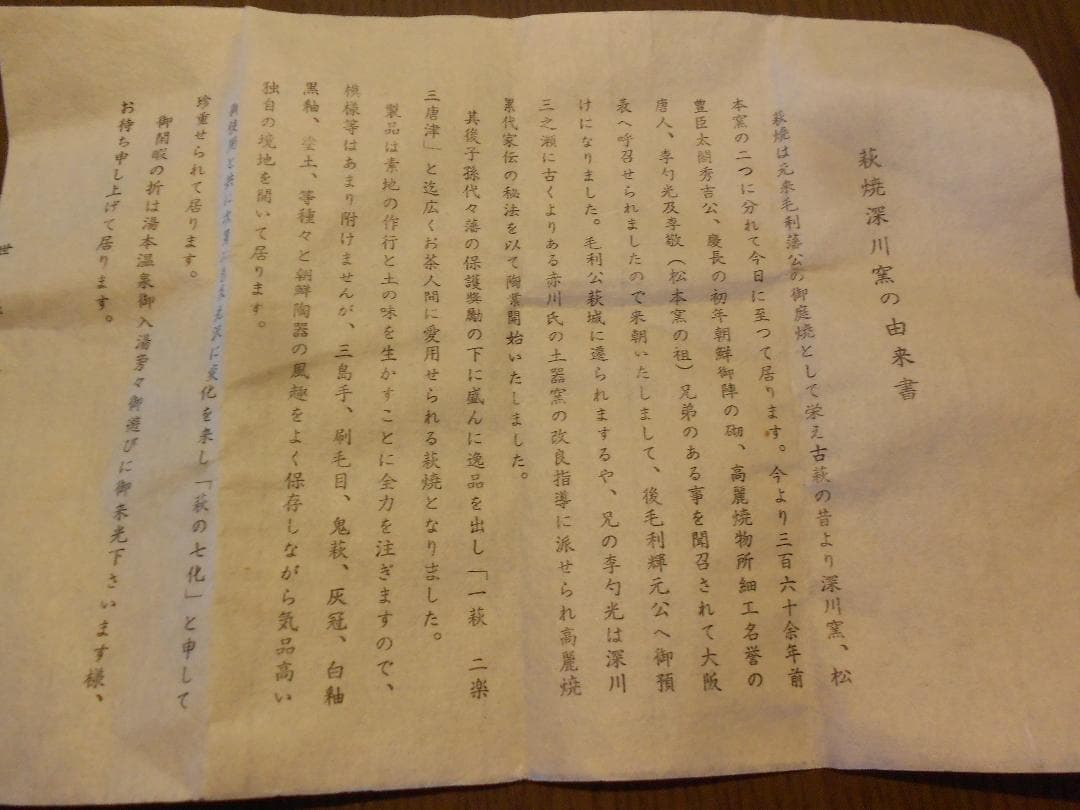 萩焼深川窯の由来書
萩焼は元来毛利藩公の御庭焼として栄え古萩の昔より深川窯、松
本窯の二つに分れて今日に至つて居ります。今より三百六十余年前
豊臣太閤秀吉公、慶長の初年朝鮮御陣の砌、高麗焼物所細工名誉の
唐人、李勺光及李敬(松本窯の祖)兄弟のある事を聞召されて大阪
表へ呼召せられましたので来朝いたしまして、後毛利輝元公へ御預
けになりました。毛利公萩城に遷られまするや、兄の李勺光は深川
三之瀬に古くよりある赤川氏の土器窯の改良指導に派せられ高麗焼
累代家伝の秘法を以て陶業開始いたしました。
其後子孫代々藩の保護奨励の下に盛んに逸品を出し「一萩 二楽
三唐津」と迄広くお茶人間に愛用せられる萩焼となりました。
製品は素地の作行と土の味を生かすことに全力を注ぎますので、
模様等はあまり附けませんが、三島手、刷毛目、鬼萩、灰冠、白釉
黒釉、塗土、等種々と朝鮮陶器の風趣をよく保存しながら気品高い
独自の境地を開いて居ります。
御使用と共に次第に色沢に変化を来し「萩の七化」と申して
珍重せられて居ります。
御閑暇の折は湯本温泉御入湯旁々御遊びに御来光下さいます様、
お待ち申し上げて居ります。